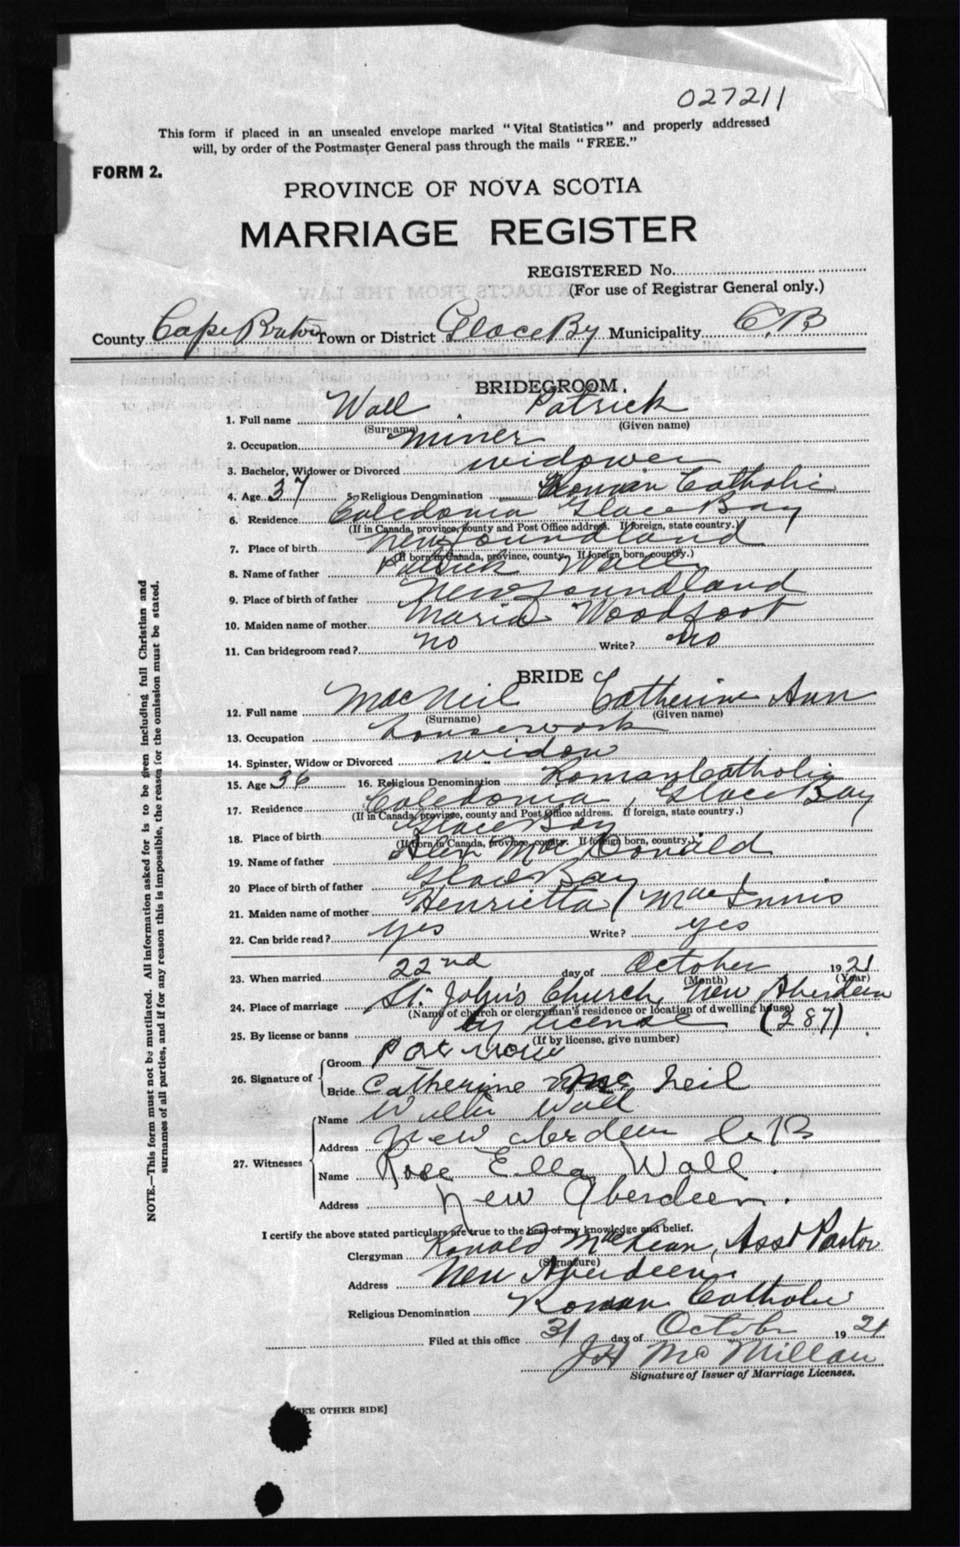 027211
This form if placed in an unsealed envelope marked "Vital Statistics" and properly addressed
will, by order of the Postmaster General pass through the mails "FREE."
FORM 2.
PROVINCE OF NOVA SCOTIA
MARRIAGE REGISTER
REGISTERED No.
(For use of Registrar General only.)
County Cape Breton Town or District Glace Bay Municipality C.B
BRIDEGROOM.
1. Full name Wall Patrick
(Surname) (Given name)
2. Occupation miner
3. Bachelor, Widower or Divorced widower
4. Age 37 5. Religious Denomination Roman Catholic
6. Residence Caledonia Glace Bay
(If in Canada, province, county and Post Office address. If foreign, state country.)
7. Place of birth Newfoundland
(If born in Canada, province, county. If foreign born, country.)
8. Name of father Patrick Wall
9. Place of birth of father Newfoundland
10. Maiden name of mother Maria Woodfoot
11. Can bridegroom read? no Write? no
BRIDE
12. Full name MacNeil Catherine Ann
(Surname) (Given name)
13. Occupation housework
14. Spinster, Widow or Divorced widow
15. Age 36 16. Religious Denomination Roman Catholic
17. Residence Caledonia, Glace Bay
(If in Canada, province, county and Post Office address. If foreign, state country.)
18. Place of birth Glace Bay
(If born in Canada, province, county. If foreign born, country.)
19. Name of father Alex MacDonald
20 Place of birth of father Glace Bay
21. Maiden name of mother Henrietta MacInnis
22. Can bride read? yes Write? yes
23. When married 22nd day of October 1921
(Month) (Year)
24. Place of marriage St. John's Church, New Aberdeen
(Name of church or clergyman's residence or location of dwelling house)
25. By license or banns by license (287)
(If by license, give number)
26. Signature of
Groom
Bride Catherine Mc Neil
27. Witnesses
Name Wall
Address New Aberdeen C B
Name Rose Ella Wall.
Address New Aberdeen.
I certify the above stated particulars are true to the best of my knowledge and belief.
Clergyman Ronald MacLean, Asst Pastor
(Signature)
Address New Aberdeen
Religious Denomination Roman Catholic
Filed at this office 31 day of October 1921
JH McMillan
Signature of Issuer of Marriage Licenses.
[SEE OTHER SIDE]
NOTE.—This form must not be mutilated. All information asked for is to be given including full Christian and
surnames of all parties, and if for any reason this is impossible, the reason for the omission must be stated.